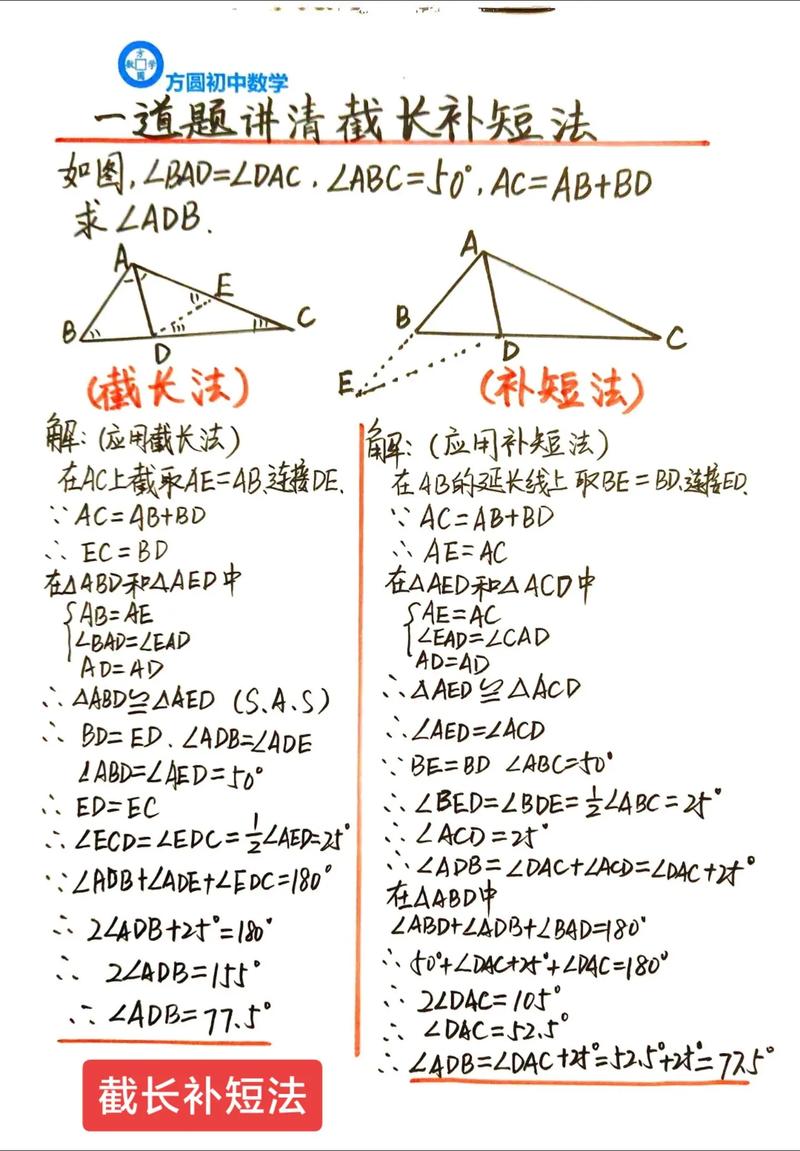 方圆数学
方圆初中数学
一道题讲清截长补短法
如图,∠BAD=∠DAC,∠ABC=50°,AC=AB+BD
求∠ADB.
A
E
B
C
D
(截长法)
A
B
D
C
E
(补短法)
解:(应用截长法)
在AC上截取AE=AB、连接DE.
∵ AC=AB+BD
∴ EC=BD
在△ABD和△AED中
AB=AE
∠BAD=∠EAD
AD=AD
∴ △ABD≌△AED (S.A.S)
∴ BD=ED、∠ADB=∠ADE
∠ABD=∠AED=50°
∴ ED=EC
∴ ∠ECD=∠EDC=1/2∠AED=25°
∵ ∠ADB+∠ADE+∠EDC=180°
∴ 2∠ADB+25°=180°
∴ 2∠ADB=155°
∴ ∠ADB=77.5°
解:(应用补短法)
在AB的延长线上取BE=BD、连接ED.
∵ AC=AB+BD
∴ AE=AC
在△AED和△ACD中
AE=AC
∠EAD=∠CAD
AD=AD
∴ △AED≌△ACD
∴ ∠AED=∠ACD
∵ BE=BD ∠ABC=50°
∴ ∠BED=∠BDE=1/2∠ABC=25°
∴ ∠ACD=25°
∴ ∠ADB=∠DAC+∠ACD=∠DAC+25°
在△ABD中
∠ABD+∠ADB+∠BAD=180°
∴ 50°+∠DAC+25°+∠DAC=180°
∴ 2∠DAC=105°
∴ ∠DAC=52.5°
∴ ∠ADB=∠DAC+25°=52.5°+25°=77.5°
截长补短法